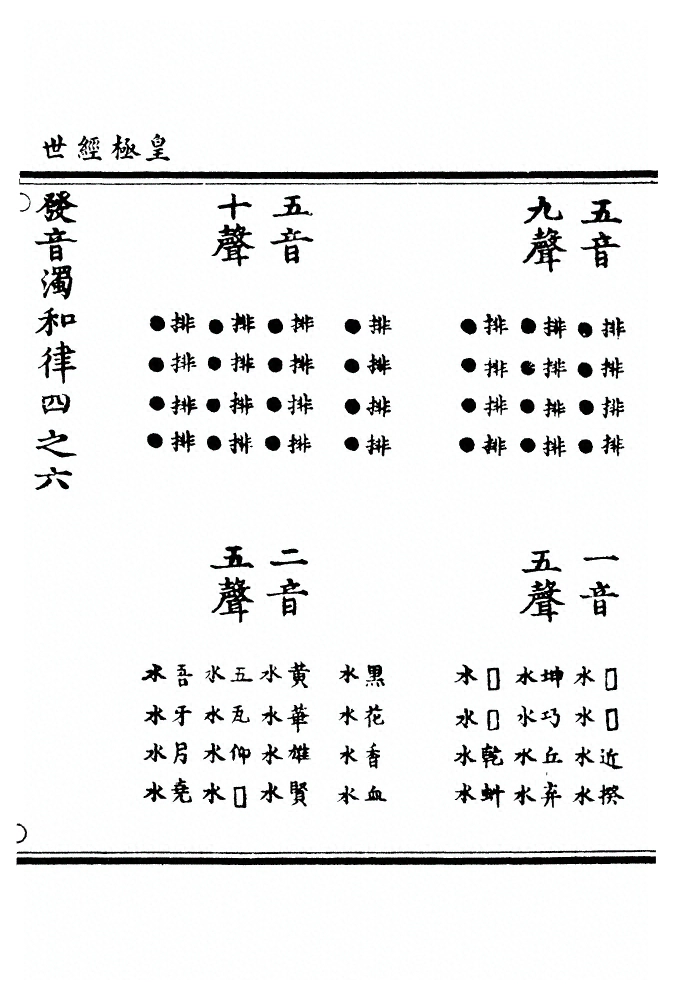 皇極經世
五音
九聲
排排排排
●●●●
排排排排
●●●●
排排排排
●●●●
一音
五聲
□□近揆
水水水水
坤巧丘弃
水水水水
□□乾虯
水水水水
五音
十聲
排排排排
●●●●
排排排排
●●●●
排排排排
●●●●
排排排排
●●●●
二音
五聲
黑花香血
水水水水
黃華雄賢
水水水水
五瓦仰□
水水水水
吾牙月堯
水水水水
發音濁和律四之六